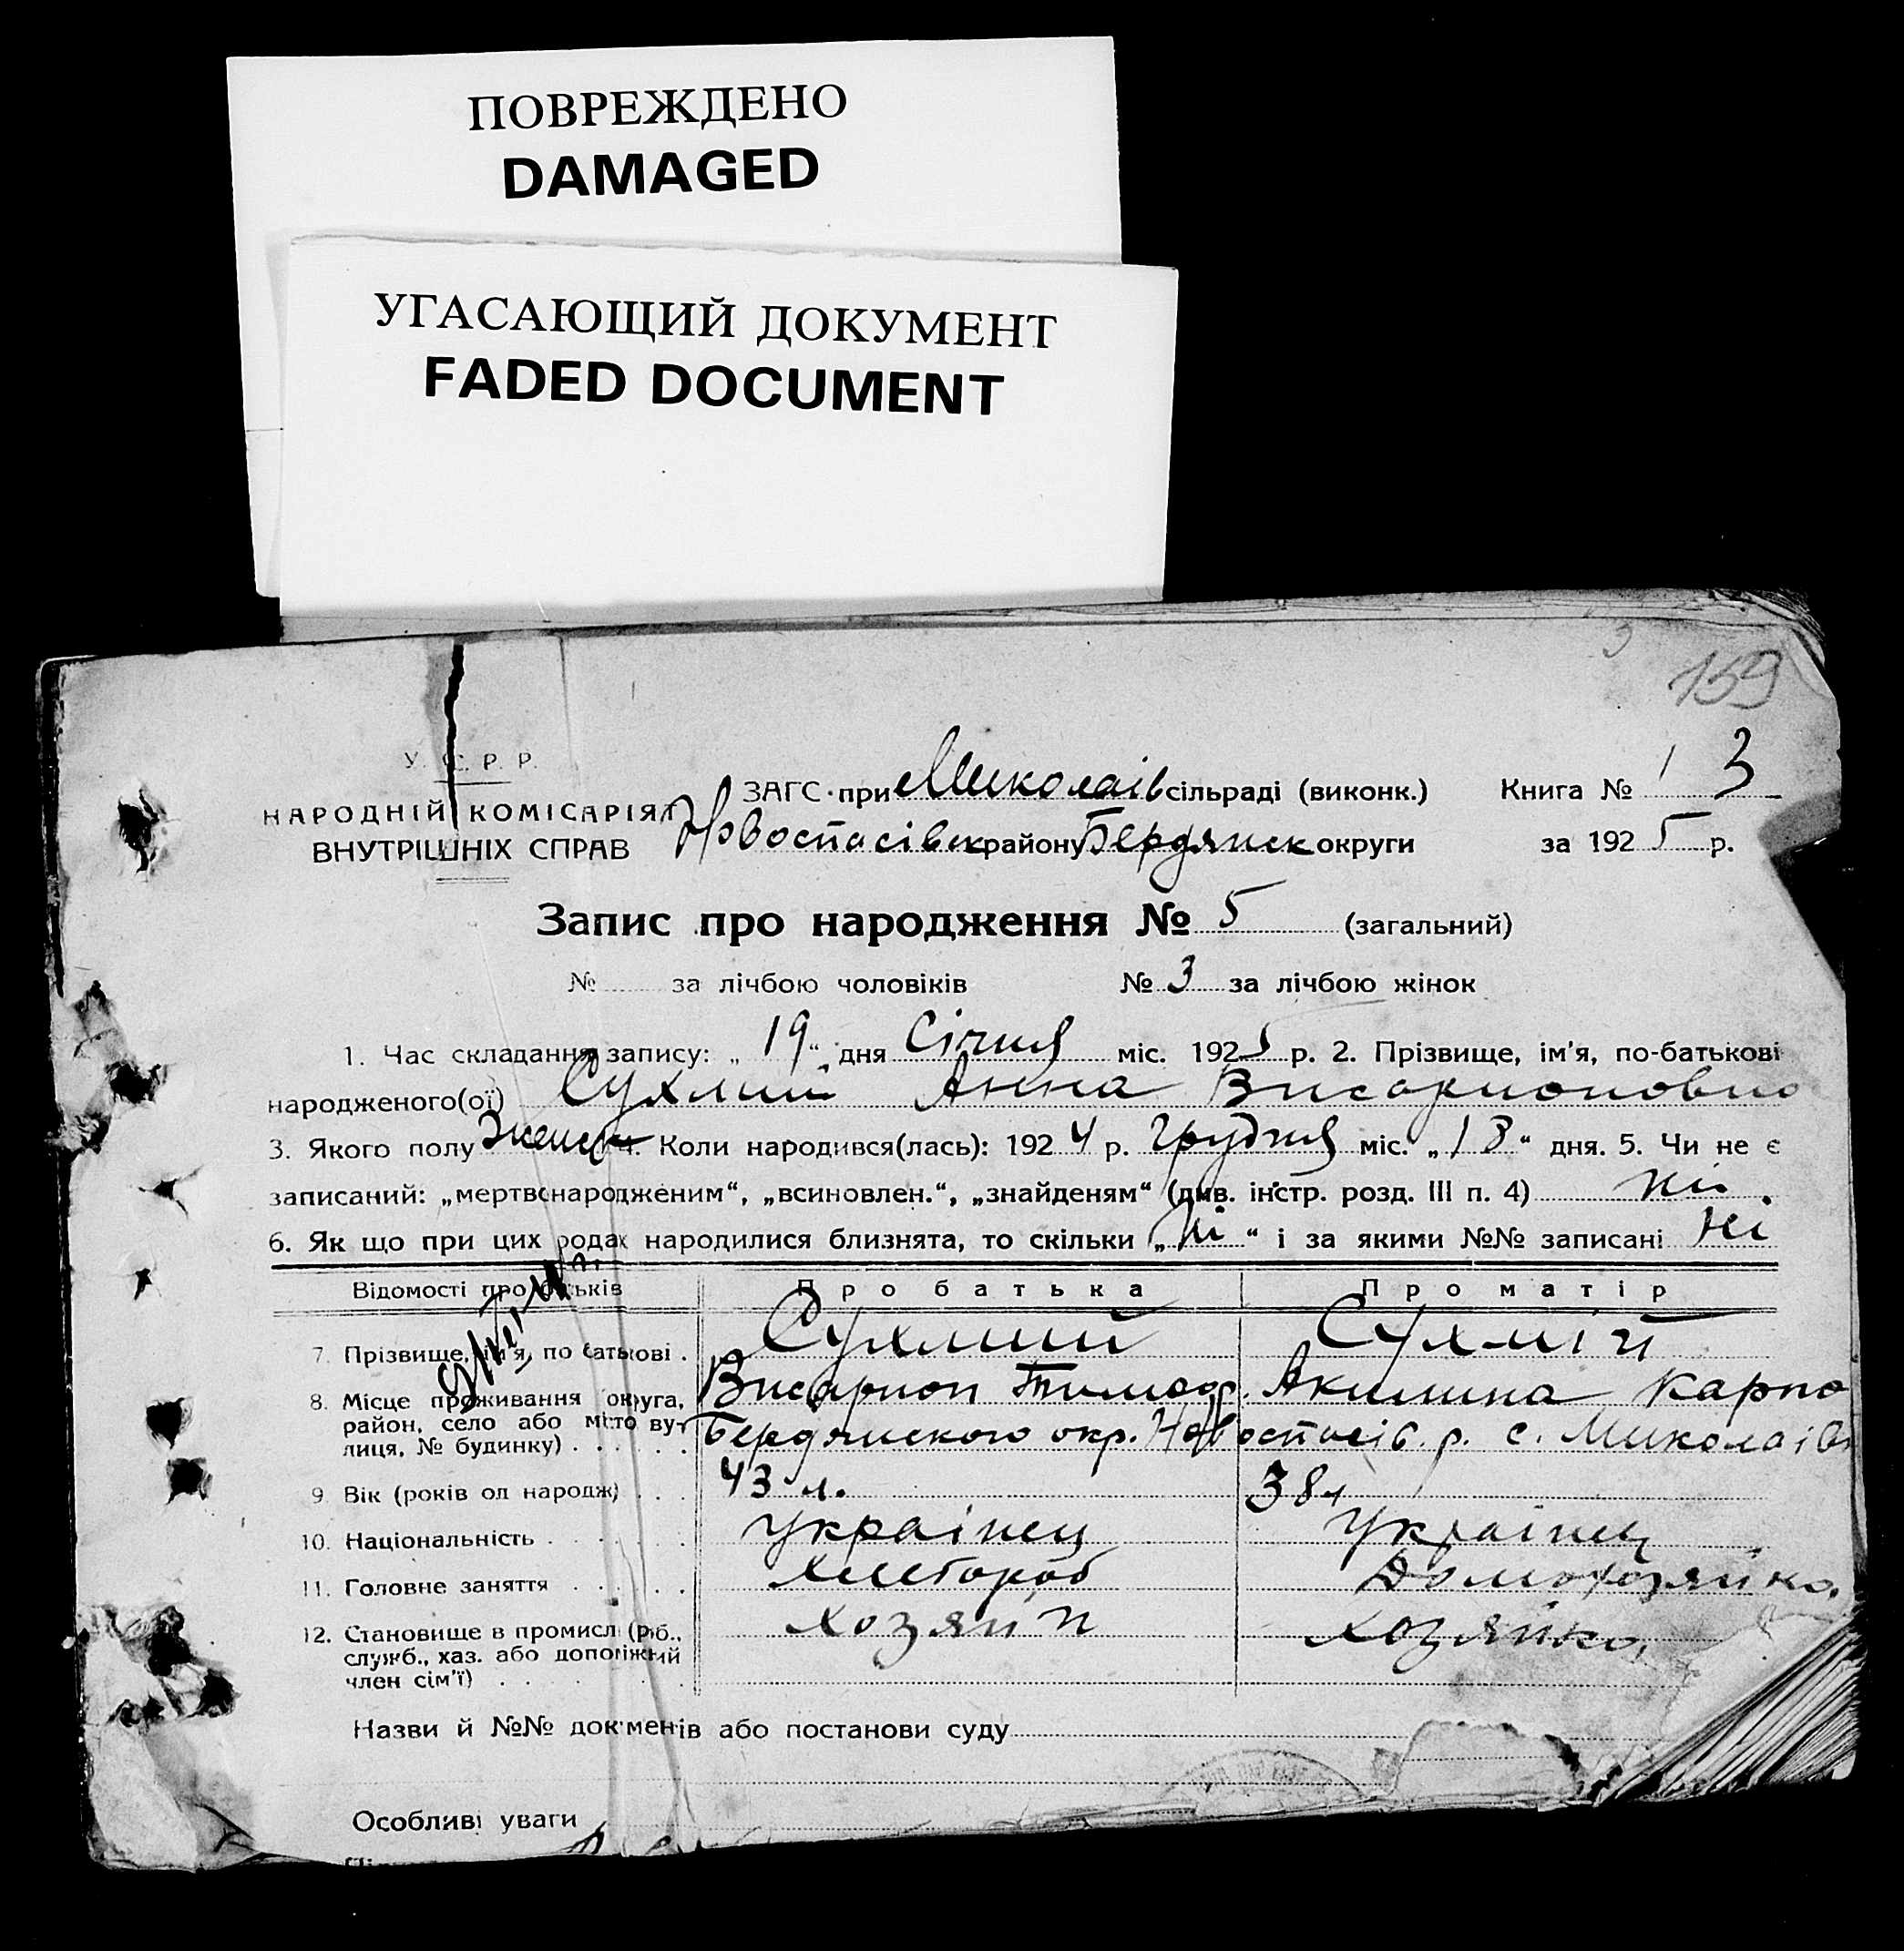 ПОВРЕЖДЕНО
DAMAGED
УГАСАЮЩИЙ ДОКУМЕНТ
FADED DOCUMENT
159
У. С. Р. Р.
НАРОДНІЙ КОМІСАРІЯТ
ВНУТРІШНІХ СПРАВ
ЗАГС при Миколаів сільраді (виконк.) Книга № 3
Новоспасівск району Бердянск округи за 1925 р.
Запис про народження № 5 (загальний)
№ за лічбою чоловіків № 3 за лічбою жінок
1. Час складання запису: „19“ дня Січня міс. 1925 р. 2. Прізвище, ім'я, по-батькові
народженого(ої) Сухмий Анна Висарионовна
3. Якого полу женск 4. Коли народився(лась): 1924 р. Грудня міс. „18“ дня. 5. Чи не є
записаний: „мертвонародженим“, „всиновлен.“, „знайденям“ (див. інстр. розд. III п. 4) ні.
6. Як що при цих родах народилися близнята, то скільки „ні“ і за якими №№ записані ні
Відомості про батьків Про батька Про матір
7. Прізвище, ім'я, по батькові . Сухмий Сухмій
Висарион Тимоф. Акилина Карпо
8. Місце проживання округа,
район, село або місто ву-
лиця, № будинку) . . . . . . Бердянского окр. Новоспасів. р. с. Миколаів
9 Вік (років од народж) . . . 43 л. 38 л
10. Національність . . . . . . украінец Украінец
11. Головне заняття . . . . . хлебороб Домохозяйка
12. Становище в промисл (роб.,
служб., хаз. або допоміжний
член сім'ї) . . . . . . . хозяйн хозяйка
Назви й №№ докменів або постанови суду
Особливі уваги